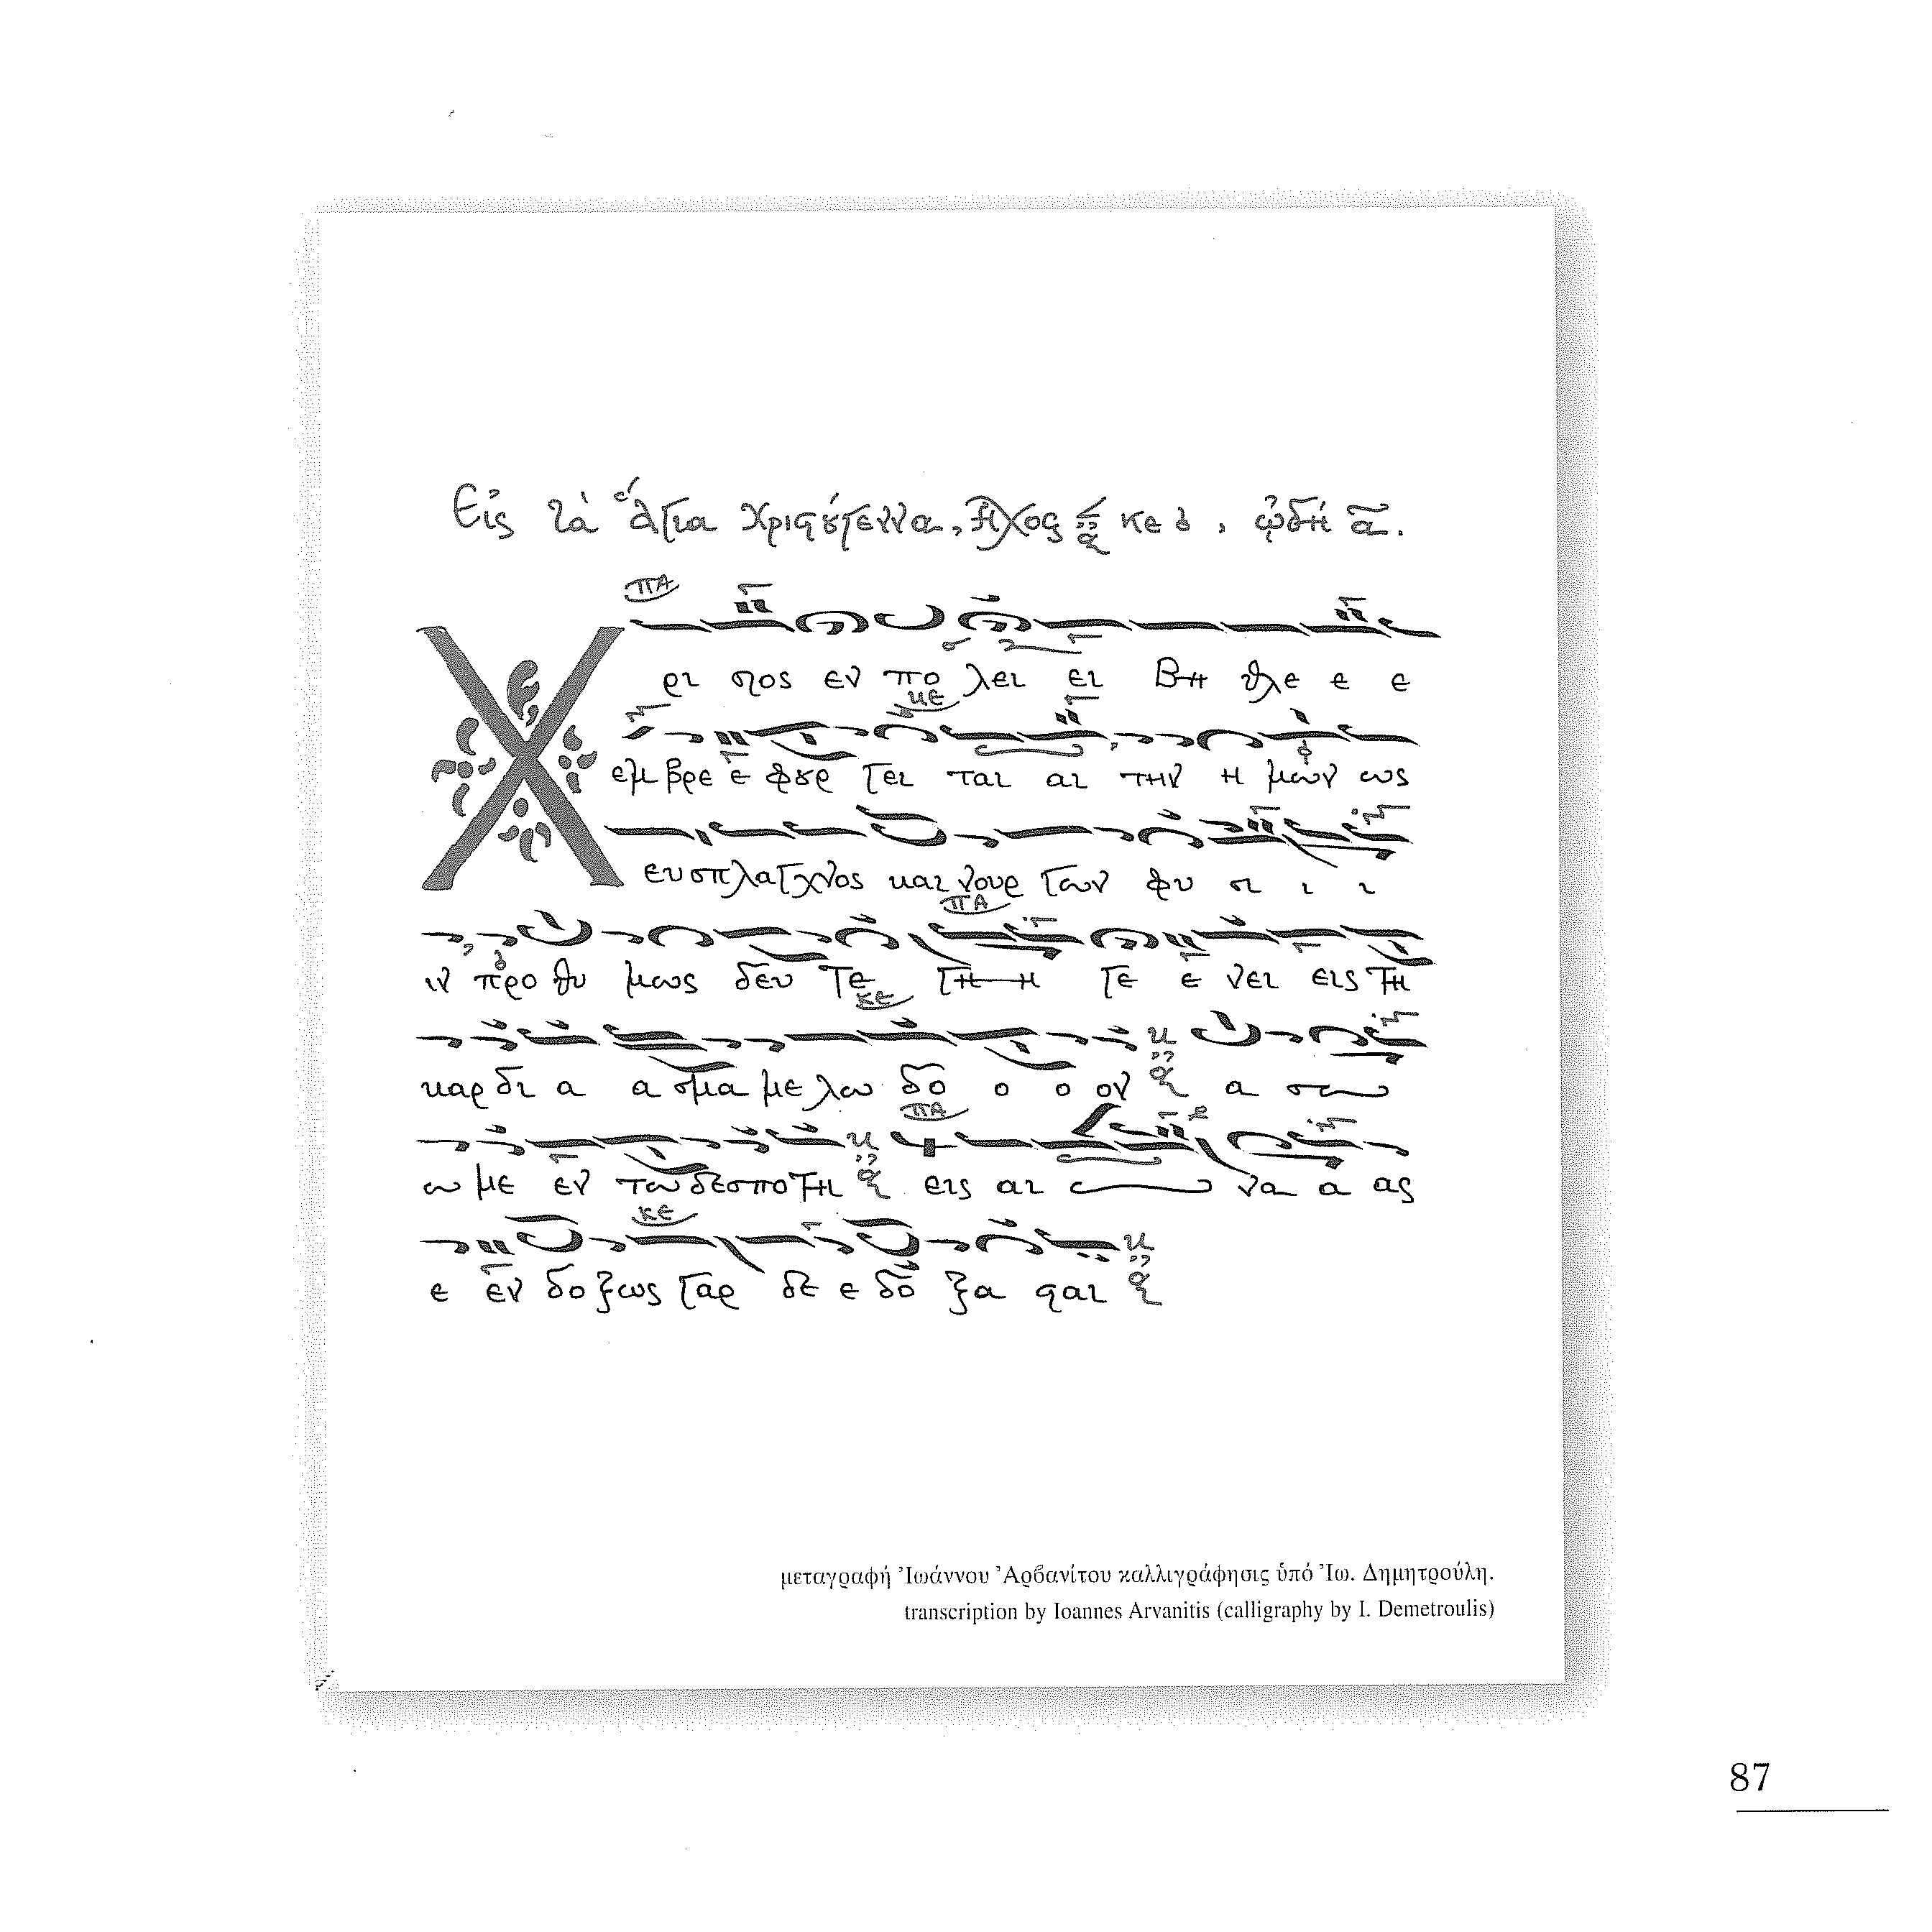 Εἰς τὰ ἅγια Χριστούγεννα, Ἦχος α κε δ, ᾠδή α.
ΠΑ
Χρι στος εν πο λει ει Βη θλε ε ε
κε
εμ βρε ε φουρ γει ται αι την η μων ως
ευσπλαγχνος και νουρ γων φυ σι ι ι
ΠΑ
ιν προ θυ μως δευ τε γη η γε ε νει εις τη
κε
καρ δι α α σμα με λω δο ο ο ον α α σω
ΠΑ
ω με εν τω δεσπο τη α εις αι να α ας
κε
ε εν δο ξως γαρ δε ε δο ξα σται α
μεταγραφή Ἰωάννου Ἀρβανίτου καλλιγράφησις ὑπό Ἰω. Δημητρούλη.
transcription by Ioannes Arvanitis (calligraphy by I. Demetroulis)
87